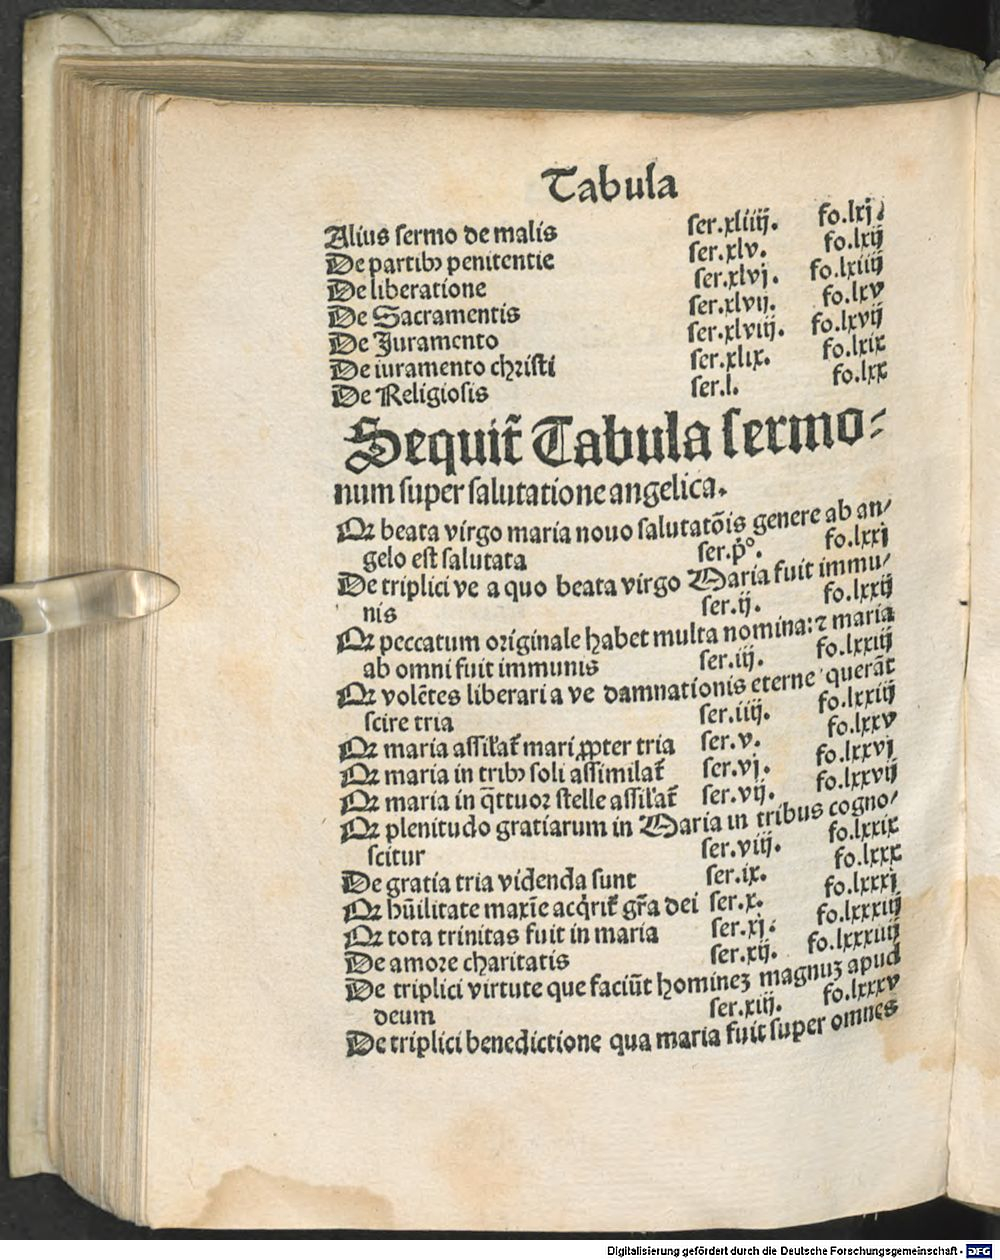 Tabula
Alius sermo de malis ser.xliiij. fo.lxj.
De partibꝫ penitentie ser.xlv. fo.lxij
De liberatione ser.xlvj. fo.lxiiij
De Sacramentis ser.xlvij. fo.lxv
De Juramento ser.xlviij. fo.lxvij
De iuramento christi ser.xlix. fo.lxix
De Religiosis ser.l. fo.lxx
Sequit̃ Tabula sermo⸗
num super salutatione angelica.
Qꝛ beata virgo maria nouo salutatõis genere ab an/
gelo est salutata ser.p̊º. fo.lxxj
De triplici ve a quo beata virgo Maria fuit immu/
nis ser.ij. fo.lxxij
Qꝛ peccatum originale habet multa nomina: ⁊ maria
ab omni fuit immunis ser.iij. fo.lxxiij
Qꝛ volẽtes liberari a ve damnationis eterne querãt
scire tria ser.iiij. fo.lxxiij
Qꝛ maria assil'at̃ mari ꝓpter tria ser.v. fo.lxxv
Qꝛ maria in tribꝫ soli assimilat̃ ser.vj. fo.lxxvj
Qꝛ maria in q̃ttuor stelle assil'at̃ ser.vij. fo.lxxvij
Qꝛ plenitudo gratiarum in Maria in tribus cogno/
scitur ser.viij. fo.lxxix
De gratia tria videnda sunt ser.ix. fo.lxxx
Qꝛ hũilitate maxĩe acq̃rit̃ gr̃a dei ser.x. fo.lxxxj
Qꝛ tota trinitas fuit in maria ser.xj. fo.lxxxiij
De amore charitatis ser.xij. fo.lxxxiiij
De triplici virtute que faciũt homineꝫ magnuꝫ apud
deum ser.xiij. fo.lxxxv
De triplici benedictione qua maria fuit super omnes
Digitalisierung gefördert durch die Deutsche Forschungsgemeinschaft - DFG